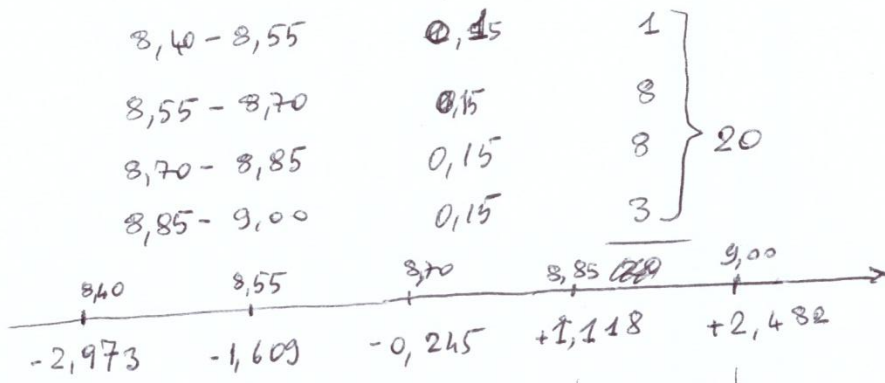 8,40 - 8,55 0,15 1
8,55 - 8,70 0,15 8
8,70 - 8,85 0,15 8 20
8,85 - 9,00 0,15 3
8,40 8,55 8,70 8,85 9,00
-2,973 -1,609 -0,245 +1,118 +2,482